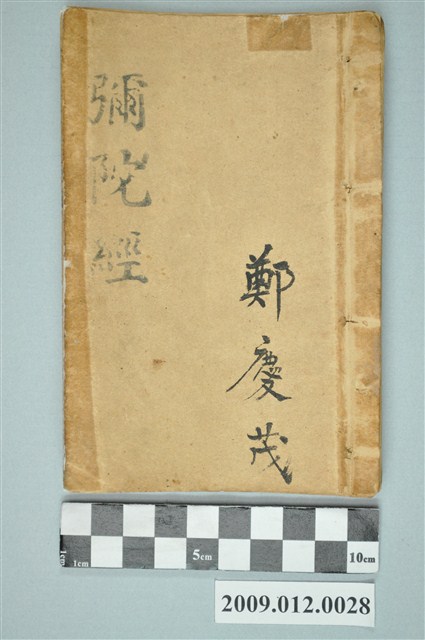 彌陀經
鄭慶茂
1cm
1cm
5cm
10cm
2009.012.0028